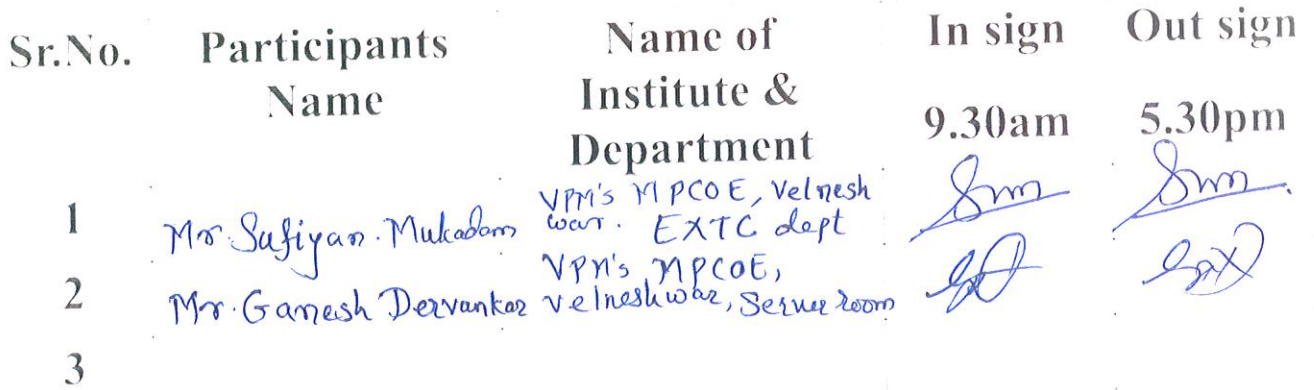 Sr.No. Participants Name Name of Institute & Department In sign 9.30am Out sign 5.30pm
1 Mr. Sufiyan. Mukadam VPM's MPCOE, Velnesh
war. EXTC dept
2 Mr. Ganesh Dervankar VPM's MPCOE,
Velneshwar, Server room
3